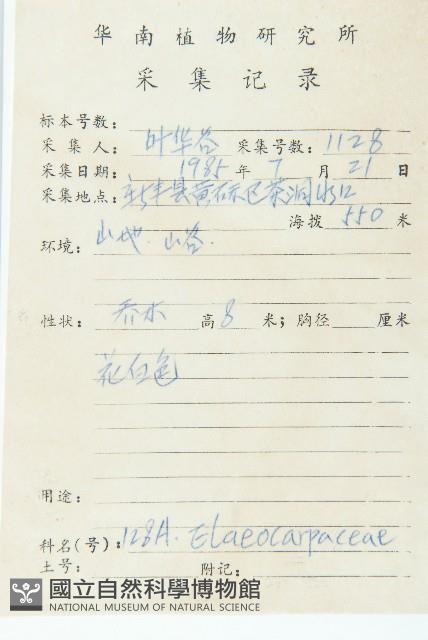 华南植物研究所
采集记录
标本号数：
采集人：叶华谷 采集号数：1128
采集日期：1985年7月21日
采集地点：新丰县黄磜区茶洞水口
海拨 550 米
环境：山地．山谷．
性状：乔木 高 8 米；胸径 厘米
花白色
用途：
科名（号）：128A. Elaeocarpaceae
土号： 附记：
國立自然科學博物館
NATIONAL MUSEUM OF NATURAL SCIENCE